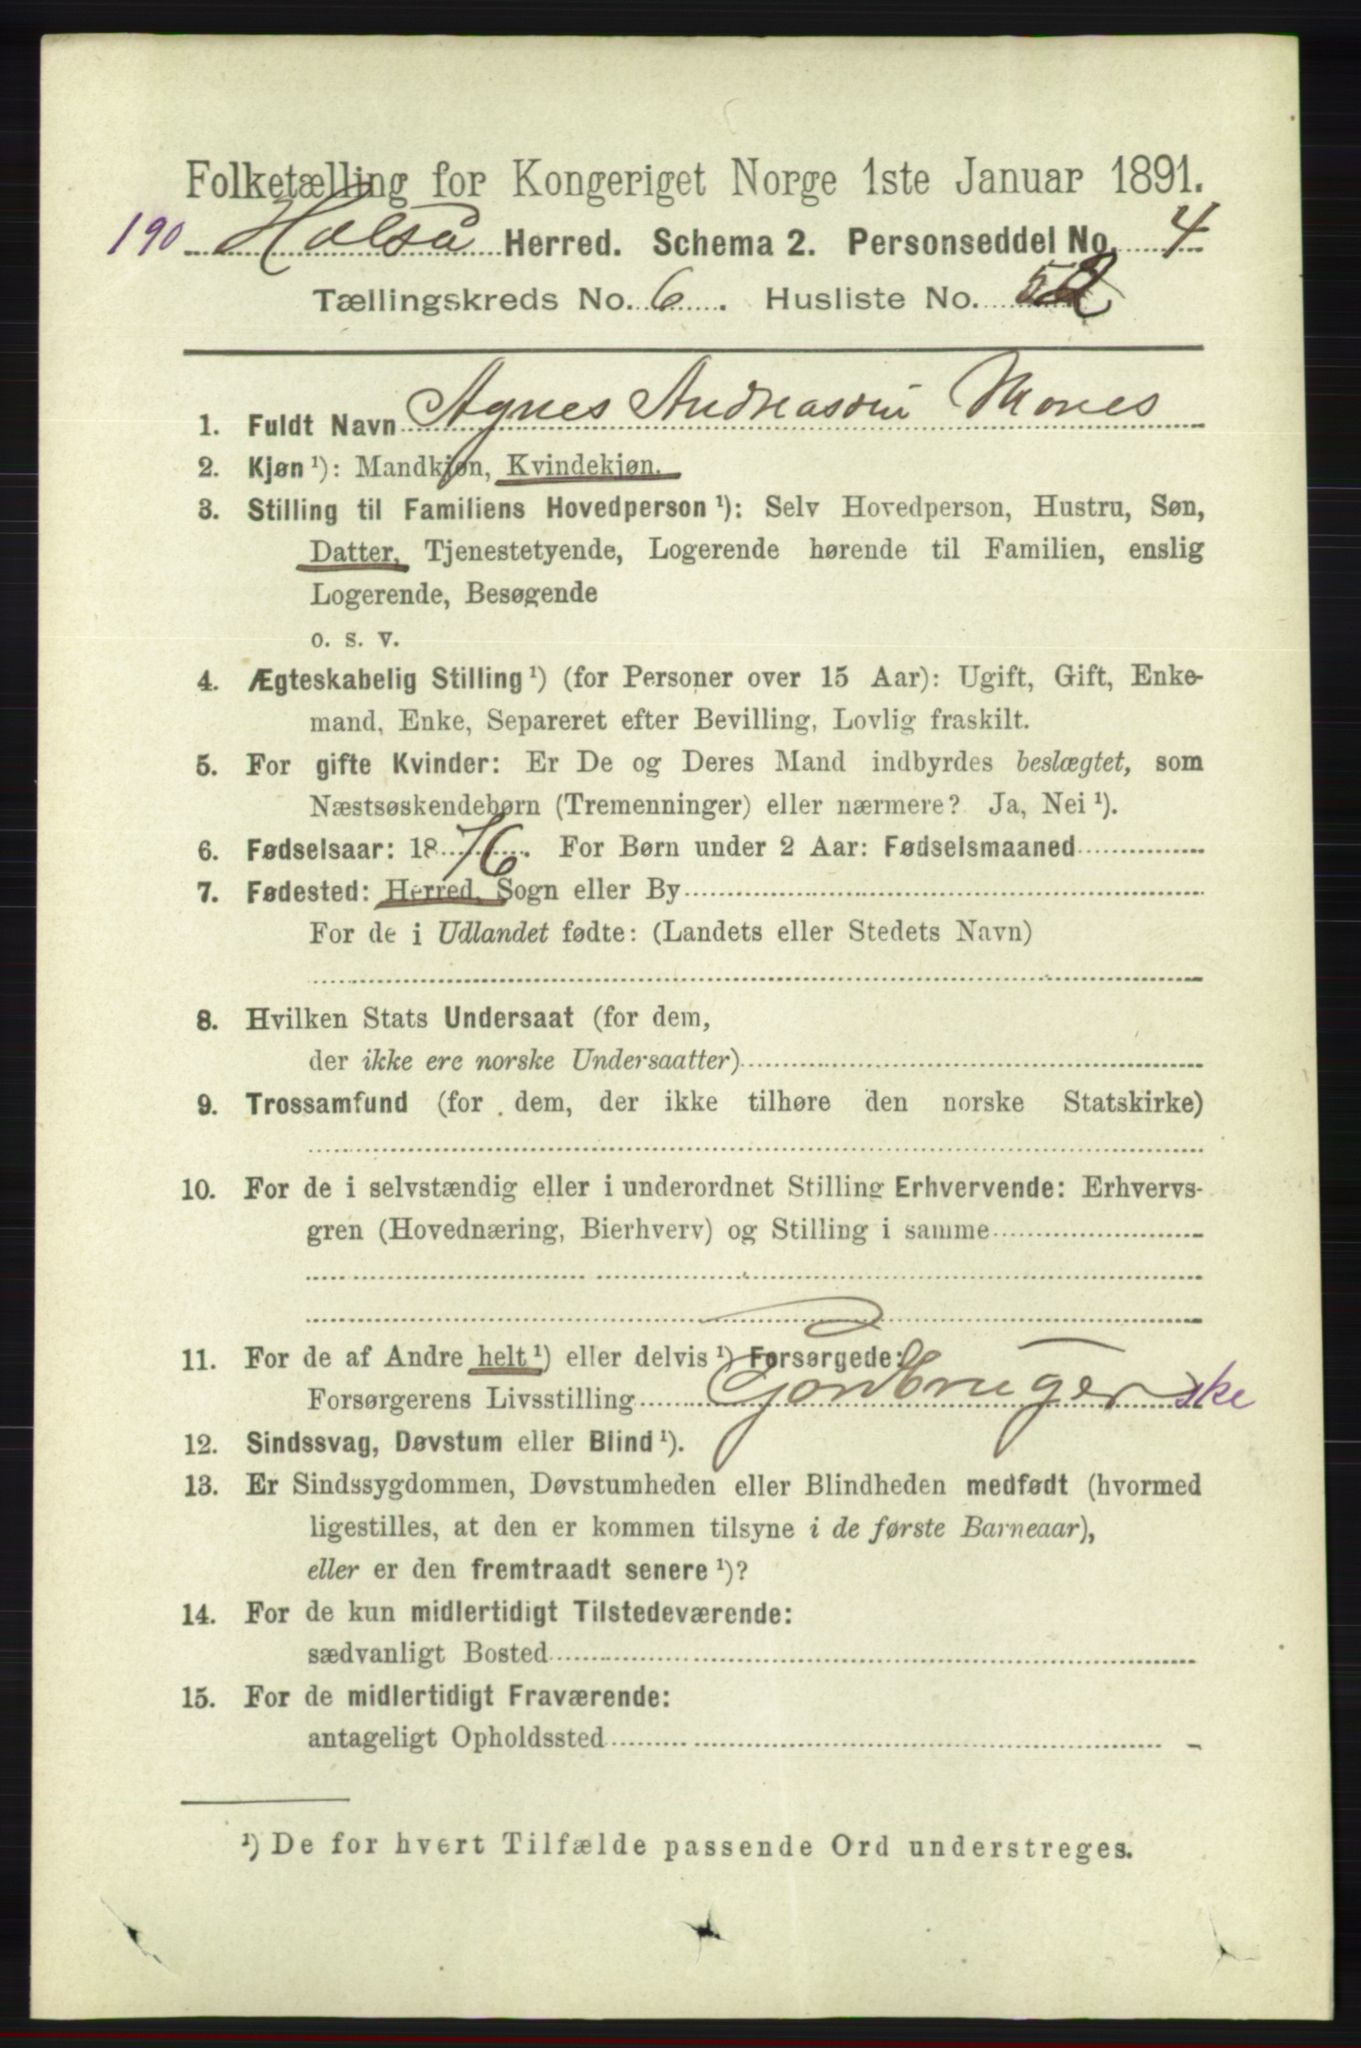 Folketælling for Kongeriget Norge 1ste Januar 1891.
190 Halsaa Herred. Schema 2. Personseddel No. 4
Tællingskreds No. 6. Husliste No. 52
1. Fuldt Navn Agnes Andreasdttr Mones
2. Kjøn ¹): Mandkjøn, Kvindekjøn.
3. Stilling til Familiens Hovedperson ¹): Selv Hovedperson, Hustru, Søn,
Datter, Tjenestetyende, Logerende hørende til Familien, enslig
Logerende, Besøgende
o. s. v.
4. Ægteskabelig Stilling ¹) (for Personer over 15 Aar): Ugift, Gift, Enke-
mand, Enke, Separeret efter Bevilling, Lovlig fraskilt.
5. For gifte Kvinder: Er De og Deres Mand indbyrdes beslægtet, som
Næstsøskendebørn (Tremenninger) eller nærmere? Ja, Nei ¹).
6. Fødselsaar: 1876. For Børn under 2 Aar: Fødselsmaaned
7. Fødested: Herred, Sogn eller By
For de i Udlandet fødte: (Landets eller Stedets Navn)
8. Hvilken Stats Undersaat (for dem,
der ikke ere norske Undersaatter)
9. Trossamfund (for dem, der ikke tilhøre den norske Statskirke)
10. For de i selvstændig eller i underordnet Stilling Erhvervende: Erhvervs-
gren (Hovednæring, Bierhverv) og Stilling i samme
11. For de af Andre helt ¹) eller delvis ¹) Forsørgede:
Forsørgerens Livsstilling Gordbrugerske
12. Sindssvag, Døvstum eller Blind ¹).
13. Er Sindssygdommen, Døvstumheden eller Blindheden medfødt (hvormed
ligestilles, at den er kommen tilsyne i de første Barneaar),
eller er den fremtraadt senere ¹)?
14. For de kun midlertidigt Tilstedeværende:
sædvanligt Bosted
15. For de midlertidigt Fraværende:
antageligt Opholdssted
¹) De for hvert Tilfælde passende Ord understreges.